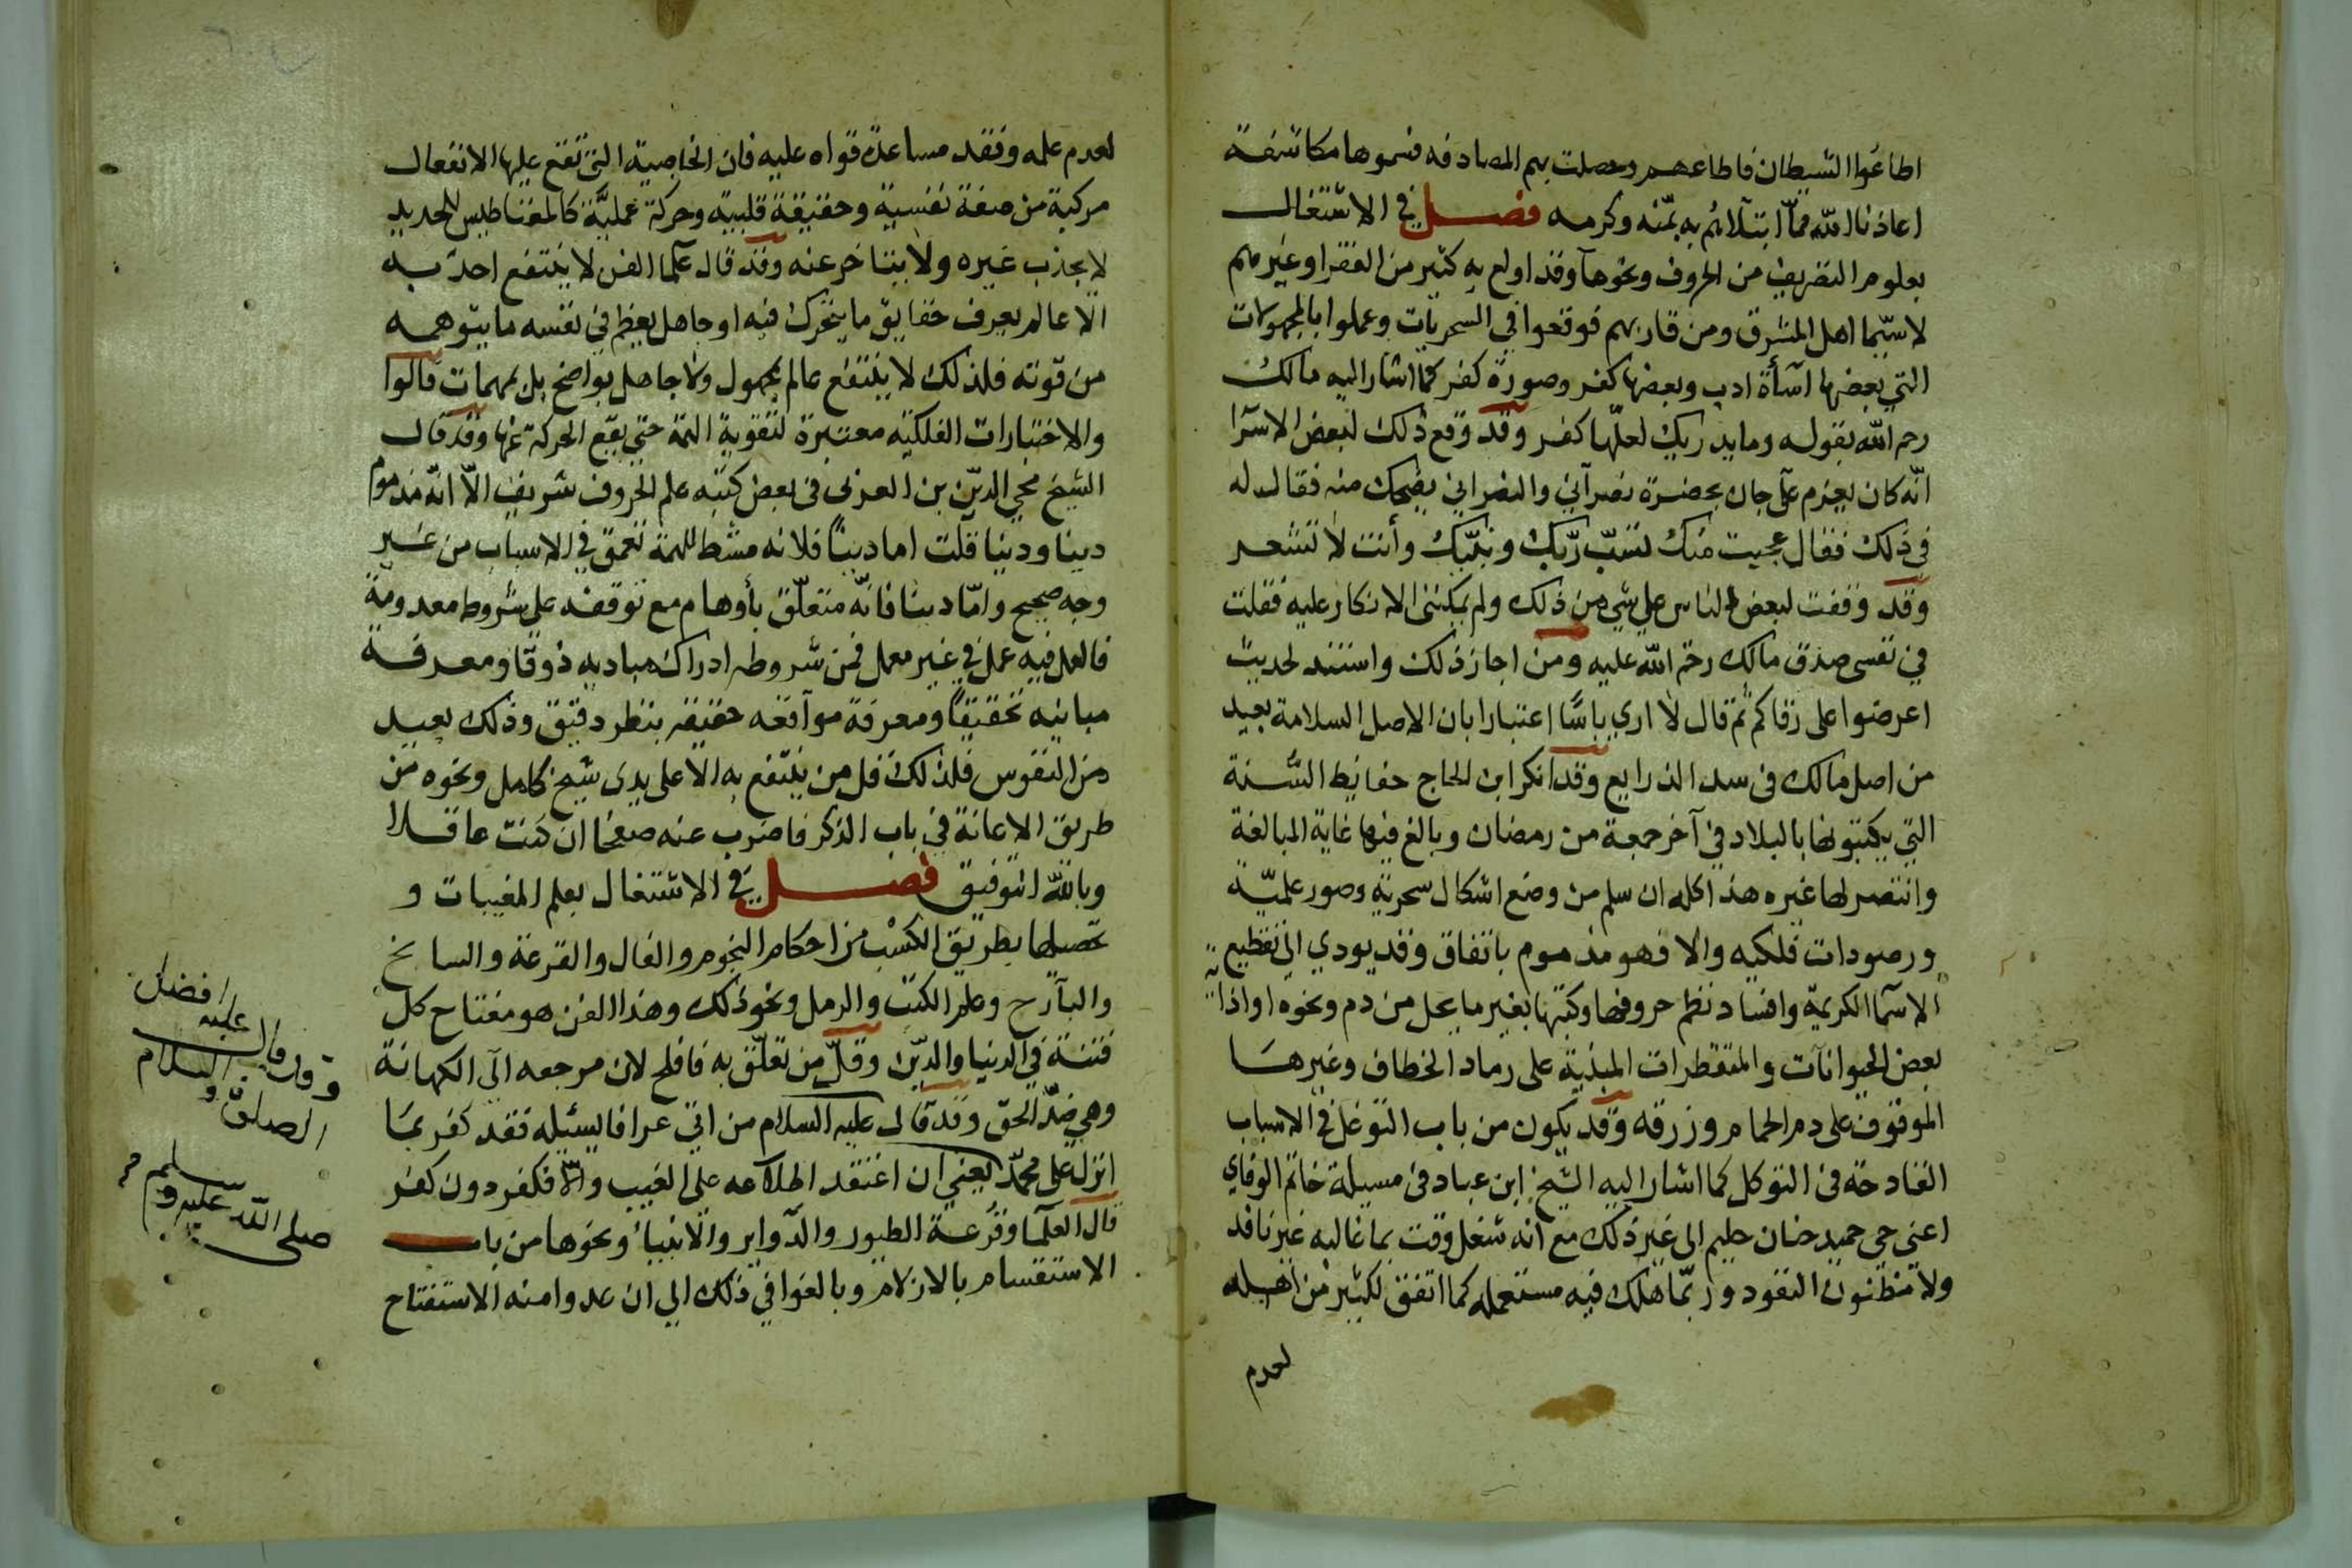 اطاعوا الشيطان فاطاعهم وحصلت بهم المصادفه فسموها مكاشفة
اعاذنا الله مما ابتلائهم به بمنه وكرمه فصل في الاشتغال
بعلوم التصريف من الحروف ونحوها وقد اولع به كثير من الفقرا وغيرهم
لا سيما اهل المشرق ومن قاربهم فوقعوا في السحريات وعملوا بالمجهولات
التي بعضها اسأة ادب وبعضها كفر وصورة كفر كما اشار اليه مالك
رحم الله بقوله وما يدريك لعلها كفر وقد وقع ذلك لبعض الاسرا
انه كان يعزم على جان بحضرة نصرآني والنصراني يضحك منه فقال له
في ذلك فقال عجبت منك تسب ربك ونبيك وأنت لا تشعر
وقد وقفت لبعض الناس على شي من ذلك ولم يمكنني الانكار عليه فقلت
في نفسي صدق مالك رحم الله عليه ومن اجاز ذلك واستند لحديث
اعرضوا على رقاكم ثم قال لا اري باسا اعتبارا بان الاصل السلامة بعيد
من اصل مالك في سد الذرايع وقد انكر ابن الحاج حفايظ السنة
التي يكتبونها بالبلاد في آخر جمعة من رمضان وبالغ فيها غاية المبالغة
وانتصر لها غيره هذا كله ان سلم من وضع اشكال سحرية وصور علمية
ورصودات فلكيه والا فهو مذموم باتفاق وقد يودي الي تقطيع
الاسما الكريمة وافساد نظم حروفها وكتبها بغير ما يحل من دم ونحوه او اذاية
بعض الحيوانات والمتقطرات المبذية على رماد الخطاف وغيرها
الموقوف على دم الحمام وزرقه وقد يكون من باب التوغل في الاسباب
الفادحة في التوكل كما اشار اليه الشيخ ابن عباد في مسيلة خاتم الوفاي
اعني حي حميد حنان حليم الى غير ذلك مع انه شغل وقت بما غالبه غير نافد
ولا مظنون النفود وربما هلك فيه مستعمله كما اتفق لكثير من اهله
لعدم
لعدم علمه وفقد مساعدة قواه عليه فان الخاصية التي تقع عليها الانفعال
مركبة من صفة نفسية وحقيقة قلبية وحركة عملية كالمغناطيس للحديد
لا يجذب غيره ولا يتاخر عنه وقد قال علما الفن لا ينتفع احد به
الا عالم يعرف حقايق ما يتحرك فيه او جاهل يعظم في نفسه ما يتوهمه
من قوته فلذلك لا ينتفع عالم بمجهول ولا جاهل بواضح بل بمهمات قالوا
والاختيارات الفلكية معتبرة لتقوية الهمة حتى يقع الحركة عنها وقد قال
الشيخ محي الدين بن العربي في بعض كتبه علم الحروف شريف الا انه مذموم
دينا ودنيا قلت اما دينا فلانه مشط للهمة تعمق في الاسباب من غير
وجه صحيح واما دينا فانه متعلق بأوهام مع توقفه على شروط معدومة
فالعمل فيه عمل في غير معمل فمن شروطه ادراك مباديه ذوقا ومعرفة
مبانيه تحقيقا ومعرفة موآقعه حقيقة بنظر دقيق وذلك بعيد
من النفوس فلذلك قل من ينتفع به الا على يدي شيخ كامل ونحوه من
طريق الاعانة في باب الذكر فاضرب عنه صفحا ان كنت عاقلا
وبالله التوفيق فصل في الاشتغال بعلم المغيبات و
تحصيلها بطريق الكسب من احكام النجوم والفال والقرعة والسانح
والبآرح وعلم الكتب والرمل ونحو ذلك وهذا الفن هو مفتاح كل
فتنة في الدنيا والدين وقل من تعلق به فافلح لان مرجعه الى الكهانة
وهي ضد الحق وقد قال عليه السلام من اتي عرافا ليسئله فقد كفر بما
انزل على محمد يعني ان اعتقد اطلاعه على الغيب والا فكفر دون كفر
قال العلما وقرعة الطيور والدواير والانبيا ونحوها من باب
الاستقسام بالازلام وبالغوا في ذلك الي ان عدوا منه الاستفتاح
وقد قال عليه افضل
الصلاة والسلام
صلى الله عليه وسلم